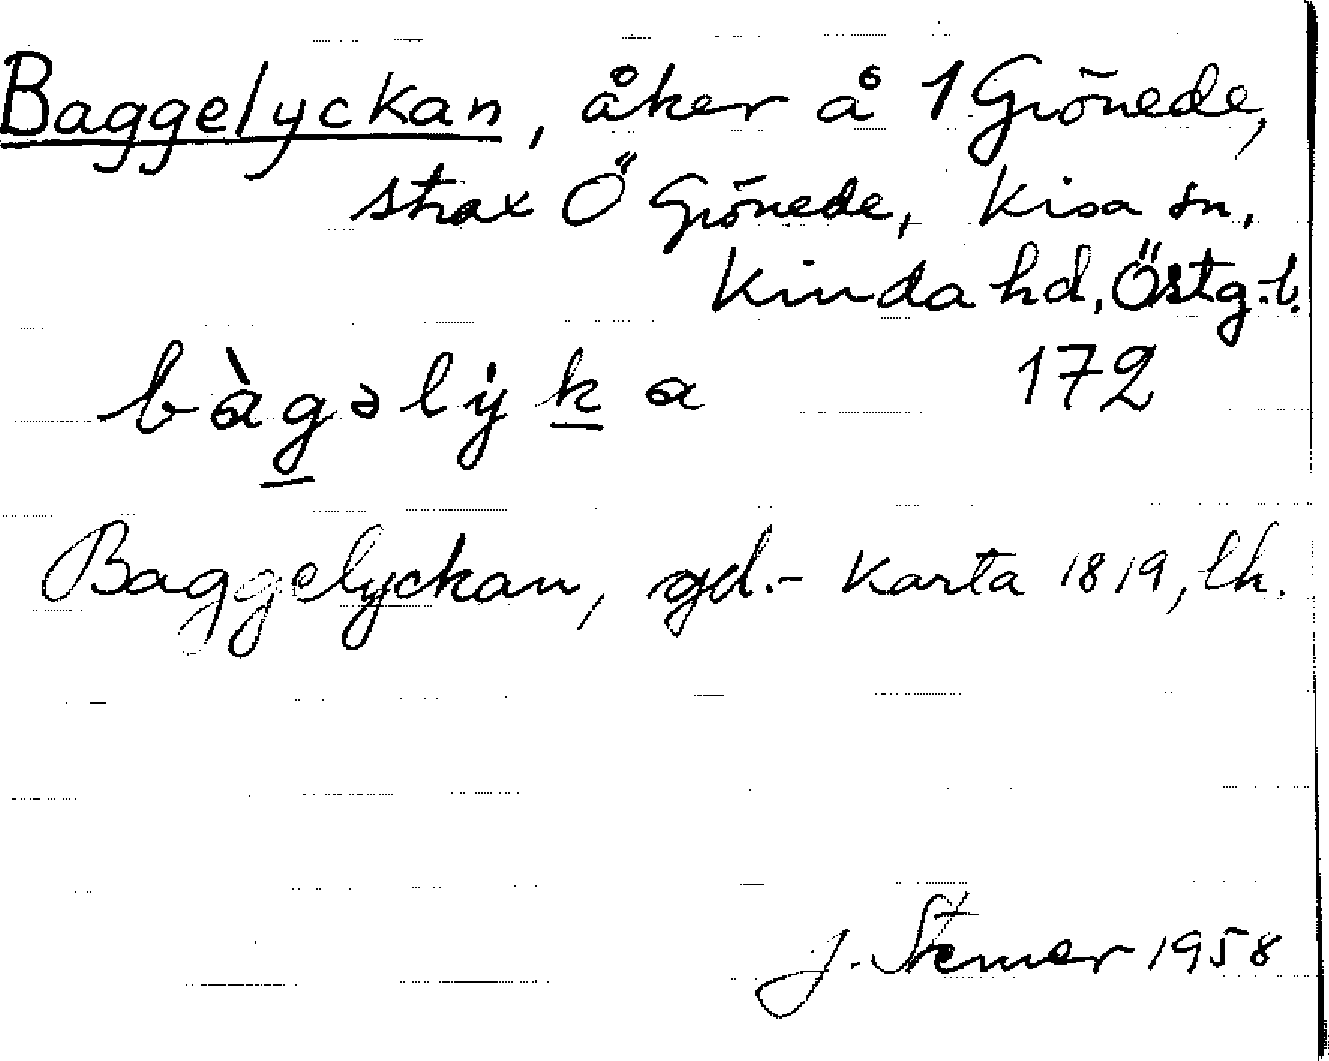 Baggelyckan, åker å 1 Grönede,
strax Ö Grönede, Kisa sn,
Kinda hd, Östg.l.
bàgəlẏka 172
Baggelyckan, gd. - Karta 1819, lh.
J. Stemer 1958